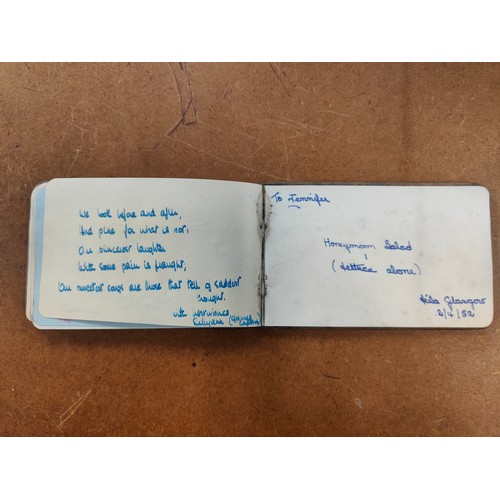 We look before and after,
And pine for what is not;
Our sincerest laughter
With some pain is fraught;
Our sweetest songs are those that tell of saddest
thought.
with
To Jennifer
Honeymoon Salad
(Lettuce alone)
Glasgow
52